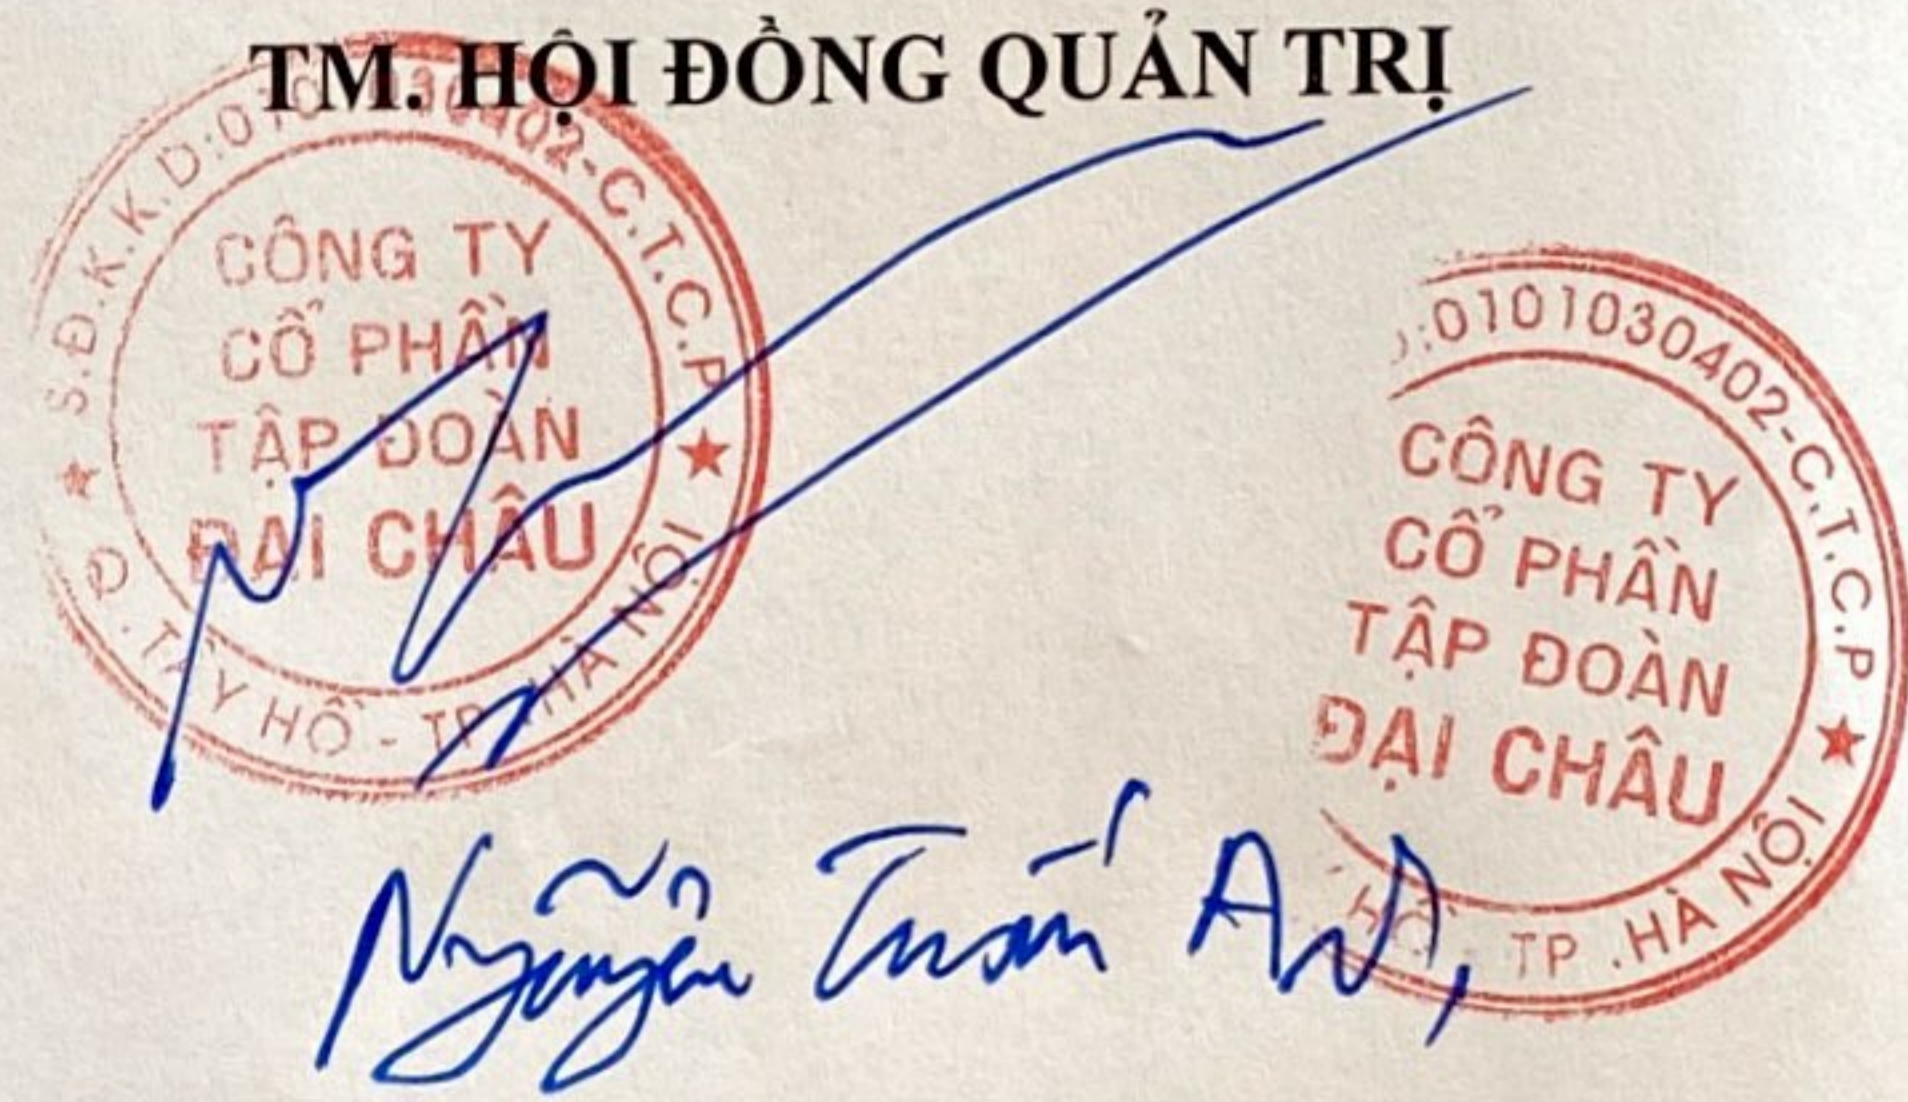 TM. HỘI ĐỒNG QUẢN TRỊ
S.Đ.K.K.D:0101030402-C.T.C.P
CÔNG TY
CỔ PHẦN
TẬP ĐOÀN
ĐẠI CHÂU
Q.TÂY HỒ - TP.HÀ NỘI
:0101030402-C.T.C.P
CÔNG TY
CỔ PHẦN
TẬP ĐOÀN
ĐẠI CHÂU
HỒ TP.HÀ NỘI
Nguyễn Tuấn